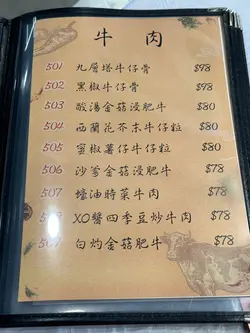 牛肉
501 九層塔牛仔骨 $98
502 黑椒牛仔骨 $98
503 酸湯金菇浸肥牛 $80
504 西蘭花芥末牛仔粒 $80
505 蜜椒薯仔牛仔粒 $80
506 沙爹金菇浸肥牛 $78
507 蠔油時菜牛肉 $78
508 XO醬四季豆炒牛肉 $78
509 白灼金菇肥牛 $78